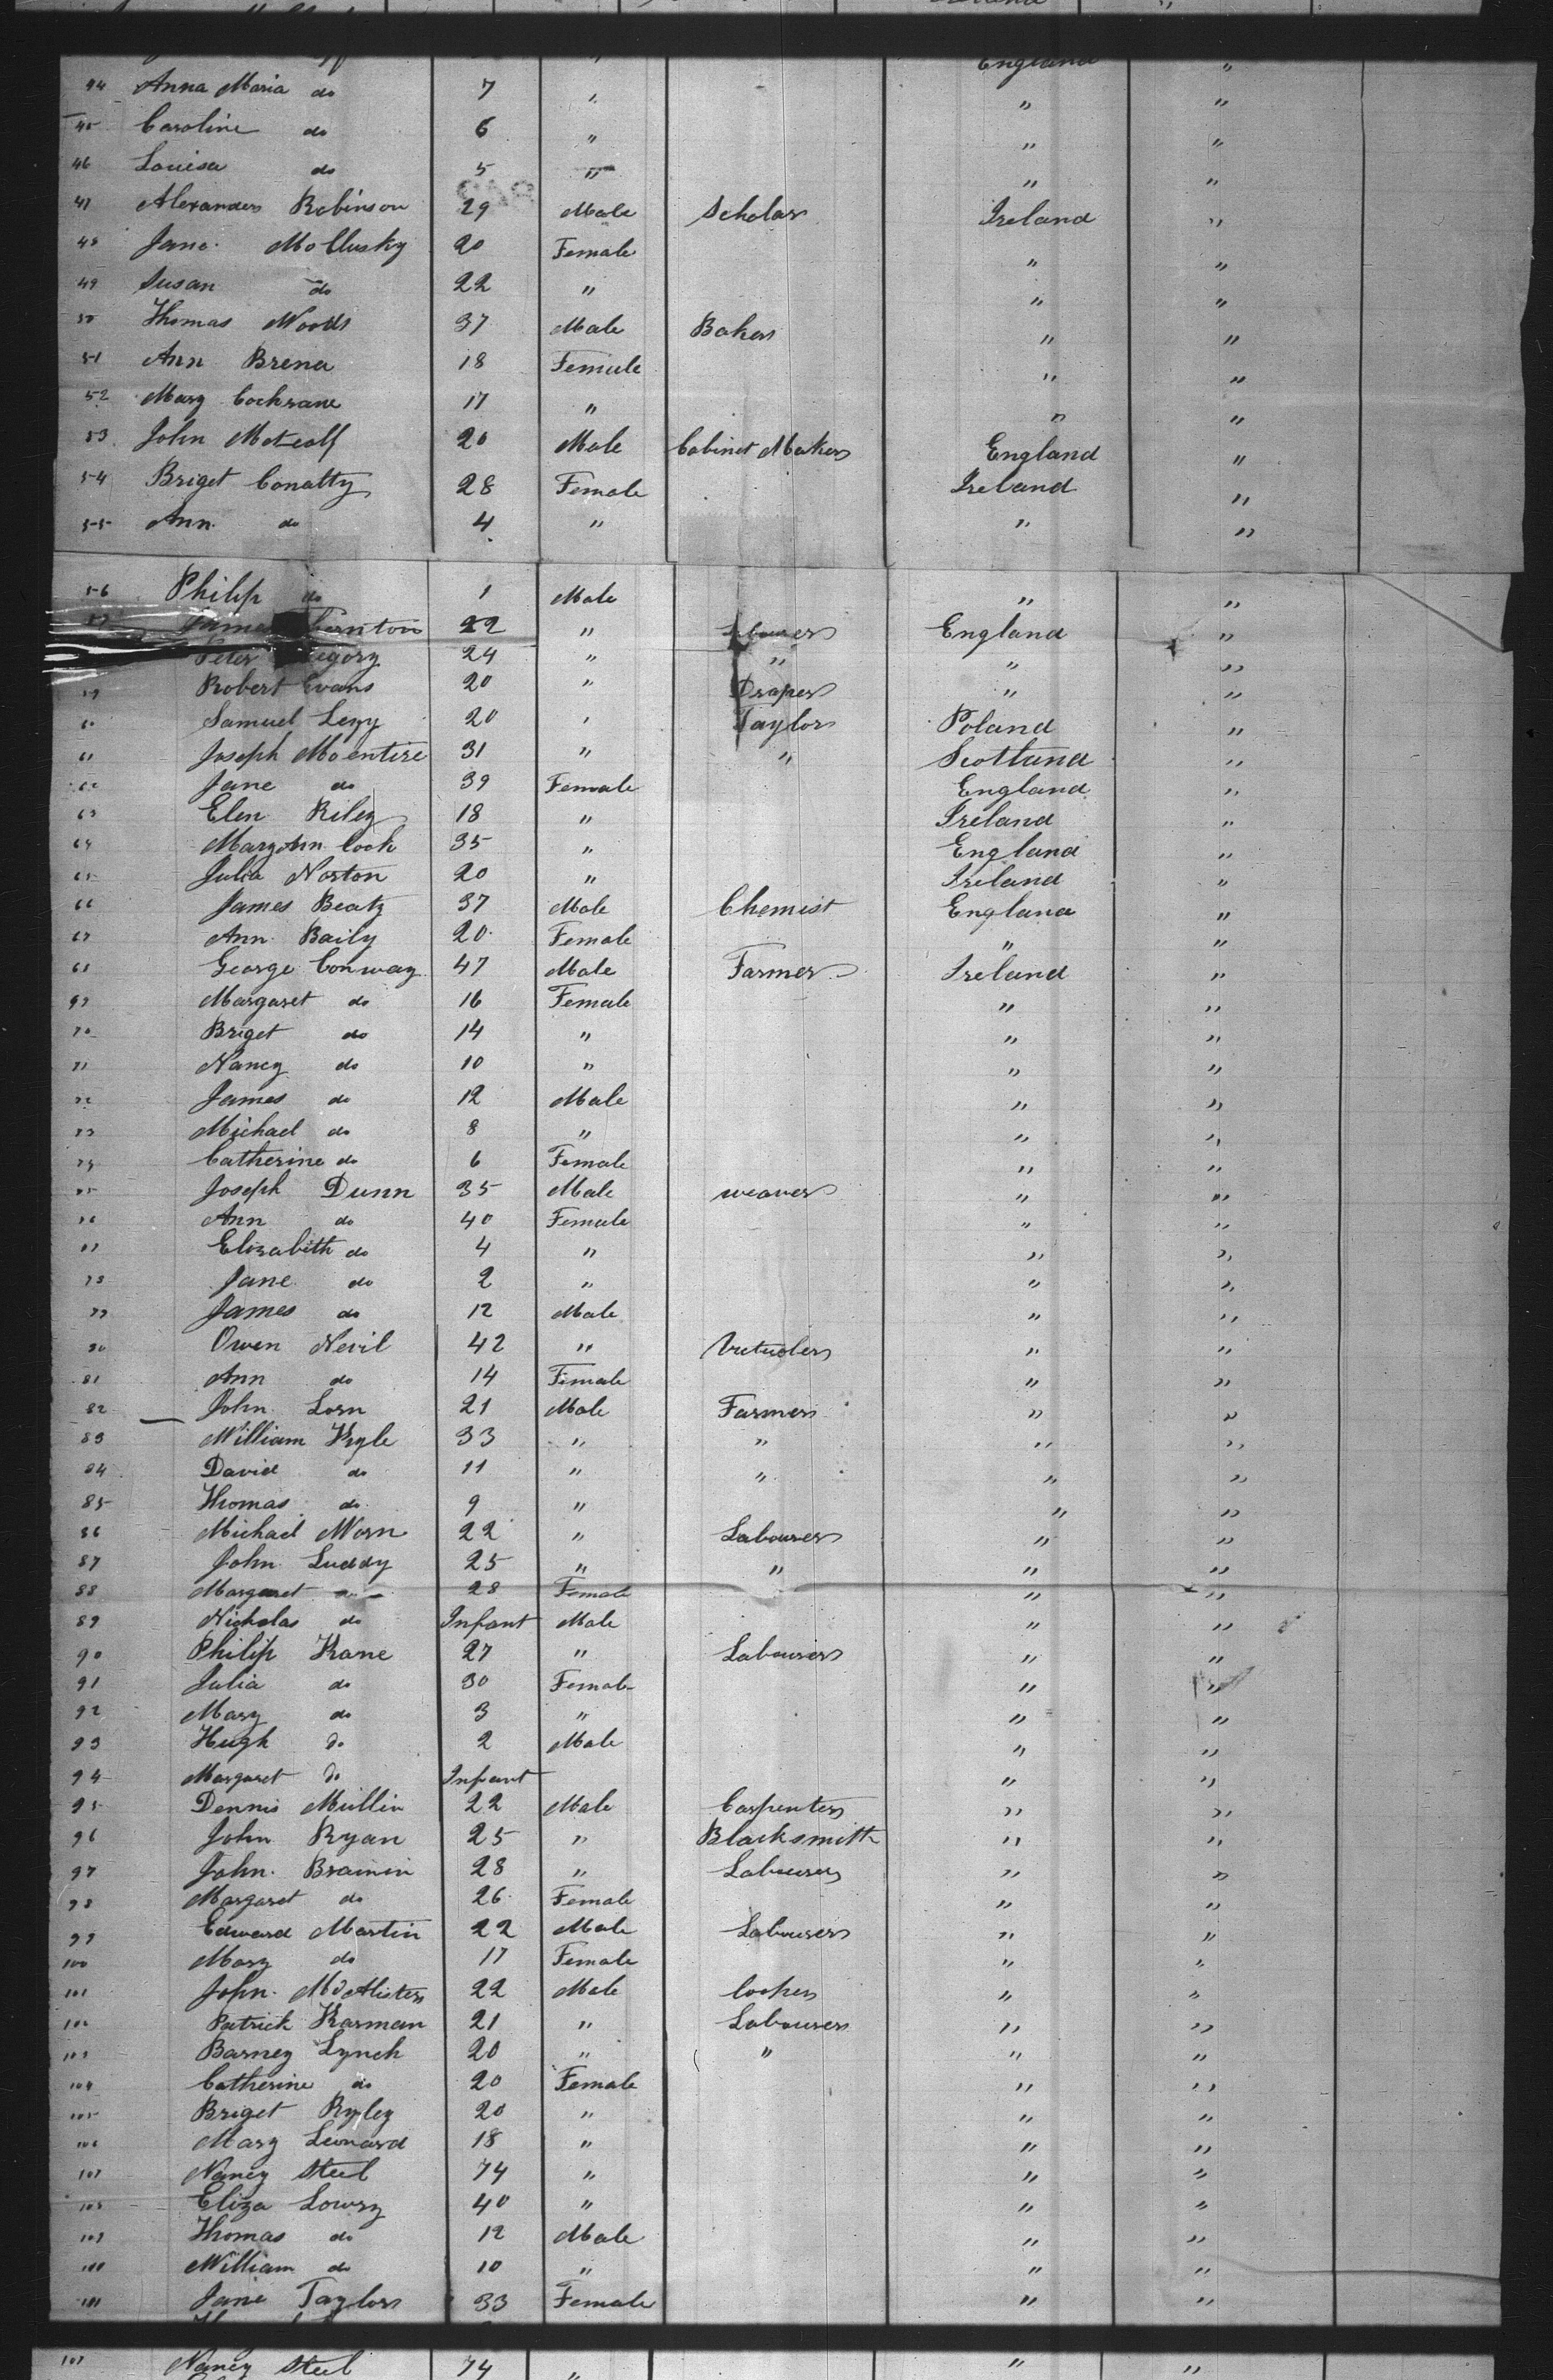 England "
44 Anna Maria do 7 " " "
45 Caroline do 6 " " "
46 Louisa do 5 " " "
47 Alexander Robinson 29 Male Scholar Ireland "
48 Jane McClusky 20 Female " "
49 Susan do 22 " " "
50 Thomas Woods 37 Male Baker " "
51 Ann Brena 18 Female " "
52 Mary Cochrane 17 " " "
53 John Metcalf 20 Male Cabinet Maker England "
54 Briget Conatty 28 Female Ireland "
55 Ann do 4 " " "
56 Philip do 1 Male " "
57 James 22 " Labourer England "
Peter Gregory 24 " " " "
59 Robert Evans 20 " Draper " "
60 Samuel Levy 20 " Taylor Poland "
61 Joseph McEntire 31 " " Scotland "
62 Jane do 39 Female England "
63 Elen Riley 18 " Ireland "
64 Mary Ann Cook 35 " England "
65 Julia Norton 20 " Ireland "
66 James Beaty 37 Male Chemist England "
67 Ann Baily 20 Female " "
68 George Conway 47 Male Farmer Ireland "
69 Margaret do 16 Female " "
70 Briget do 14 " " "
71 Nancy do 10 " " "
72 James do 12 Male " "
73 Michael do 8 " " "
74 Catherine do 6 Female " "
75 Joseph Dunn 35 Male weaver " "
76 Ann do 40 Female " "
77 Elizabeth do 4 " " "
78 Jane do 2 " " "
79 James do 12 Male " "
80 Owen Nevil 42 " " "
81 Ann do 14 Female " "
82 John Lorn 21 Male Farmer " "
83 William Kyle 33 " " " "
84 David do 11 " " " "
85 Thomas do 9 " " "
86 Michael Worn 22 " Labourer " "
87 John Luddy 25 " " " "
88 Margaret do 28 Female " "
89 Nicholas do Infant Male " "
90 Philip Kane 27 " Labourer " "
91 Julia do 30 Female " "
92 Mary do 3 " " "
93 Hugh Do 2 Male " "
94 Margaret Do Infant " "
95 Dennis Mullin 22 Male Carpenter " "
96 John Ryan 25 " Blacksmith " "
97 John Brainin 28 " Labourer " "
98 Margaret do 26 Female " "
99 Edward Martin 22 Male Labourer " "
100 Mary do 17 Female " "
101 John McAlister 22 Male Cooper " "
102 Patrick Karman 21 " Labourer " "
103 Barney Lynch 20 " " " "
104 Catherine do 20 Female " "
105 Briget Ryley 20 " " "
106 Mary Leonard 18 " " "
107 Nancy Steel 74 " " "
108 Eliza Lowry 40 " " "
109 Thomas do 12 Male " "
110 William do 10 " " "
111 Jane Taylor 33 Female " "
107 Nancy Steel 74 " " "